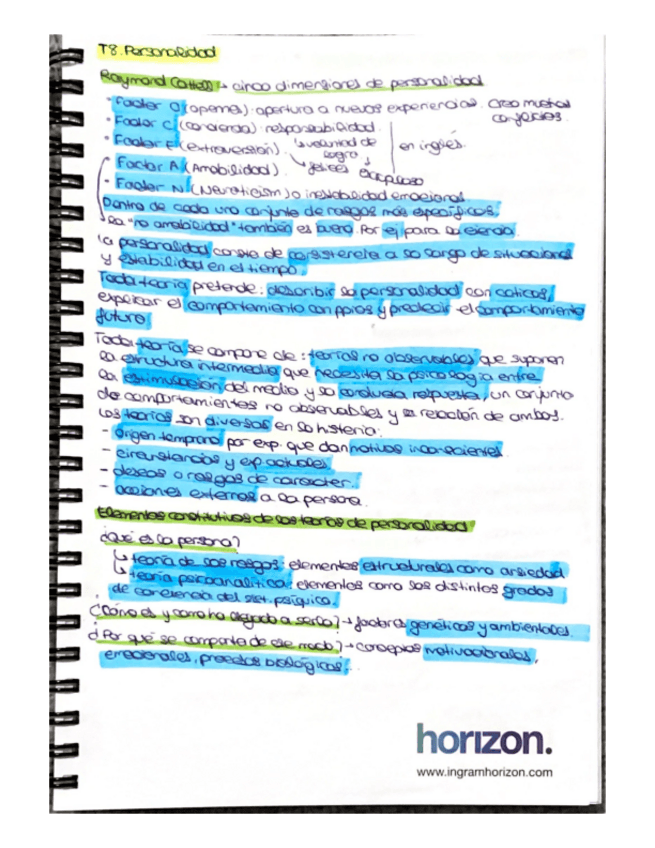 T8. Personalidad
Raymond Cattell → cinco dimensiones de personalidad
· Factor O (openness) apertura a nuevas experiencias. Crea muchas
conflictos.
· Factor C (conciencia) responsabilidad
· Factor E (extraversión) ↳ voluntad de logro en inglés.
· Factor A (Amabilidad). ↳
· Factor N (Neuroticism) o inestabilidad emocional
Dentro de cada uno conjunto de rasgos más específicos.
la "no amabilidad" también es buena. Por ej para la ciencia
La personalidad consta de consistencia a lo largo de situaciones
y estabilidad en el tiempo.
Toda teoría pretende: describir la personalidad con
explicar el comportamiento con ppios y predecir el comportamiento
futuro
Toda teoría se compone de: teorías no observables que suponen
la estructura intermedia que necesita la psicología entre
la estimulación del medio y la conducta respuesta, un conjunto
de comportamientos no observables y la relación de ambos.
Las teorías son diversas en la historia:
- origen temprano por exp. que dan motivos inconscientes
- circunstancias y exp actuales
- deseos o rasgos de caracter.
- acciones externas a la persona.
Elementos constitutivos de las teorías de personalidad
¿Qué es la persona?
↳ teoría de los rasgos: elementos estructurales como ansiedad
↳ teoría psicoanalítica: elementos como los distintos grados
de conciencia del sist. psíquico.
¿Cómo es y como ha llegado a serlo? → factores genéticos y ambientales.
¿Por qué se comporta de ese modo? → conceptos motivacionales,
emocionales, procesos biológicos.
horizon.
www.ingramhorizon.com